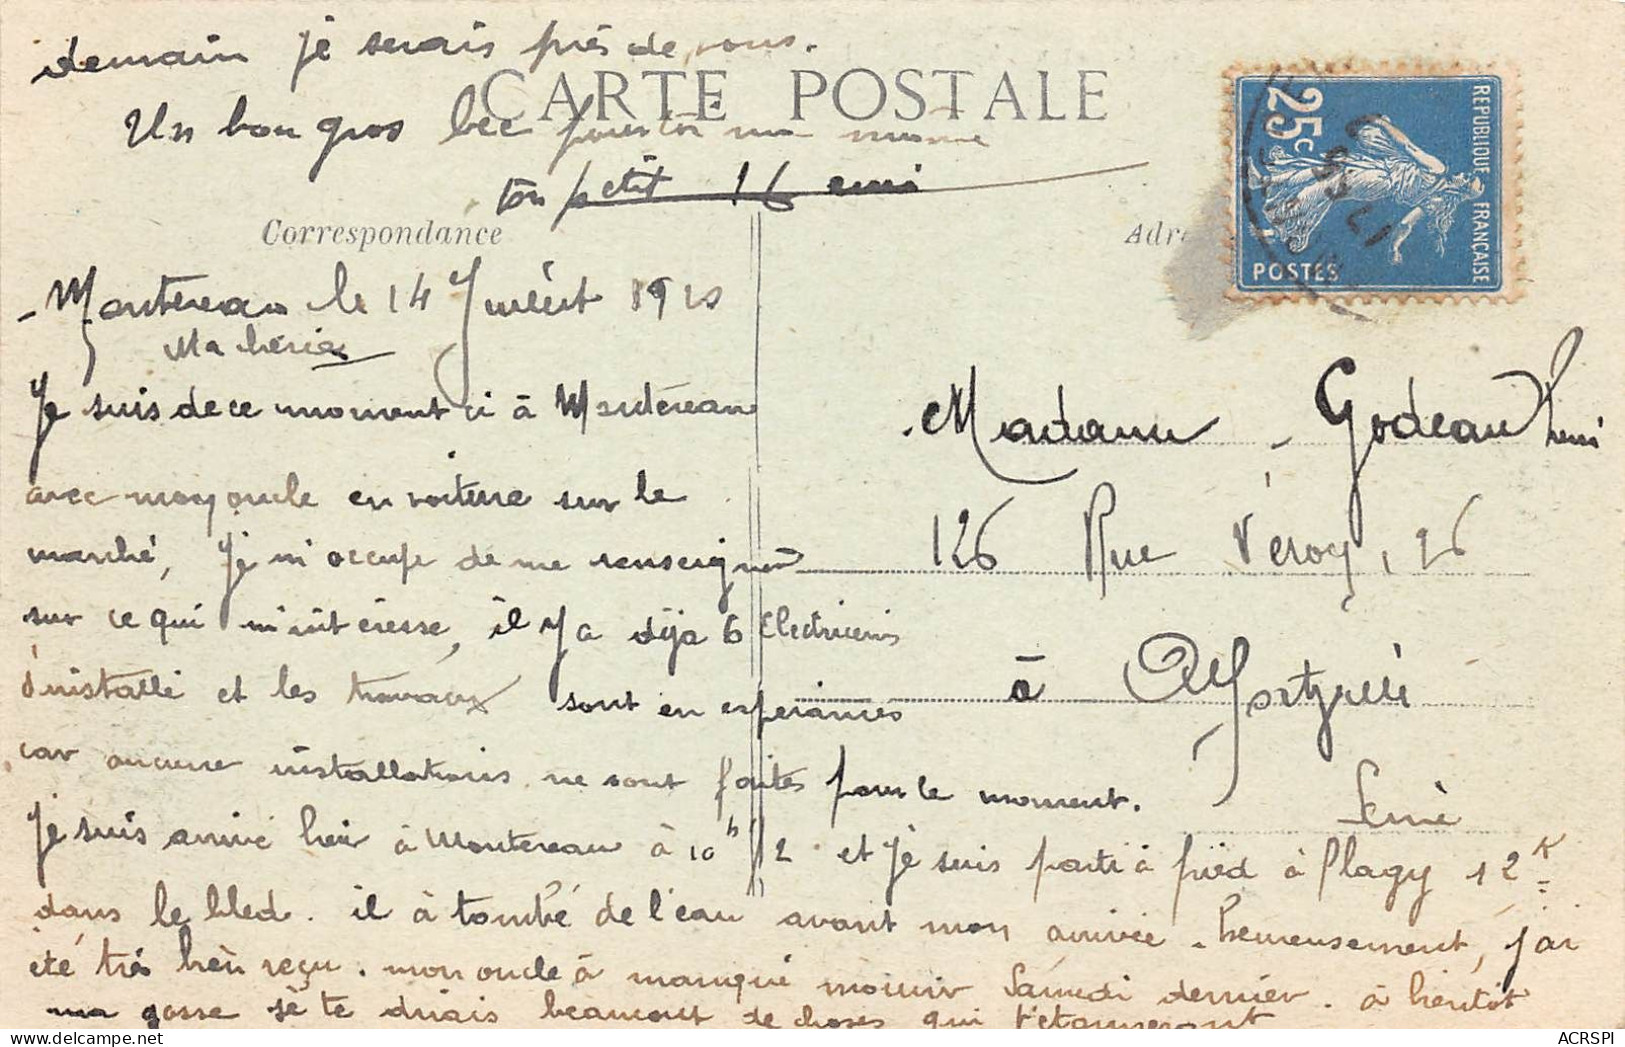 demain je serais près de vous.
CARTE POSTALE
Un bon gros bec pour toi ma mome
ton petit
Correspondance
Adr
25c
REPUBLIQUE FRANÇAISE
POSTES
Montereau le 14 Juillet 19
Ma chérie
Je suis de ce moment ci à Montereau
avec mon oncle en voiture sur le
marché, Je m'occupe de me renseigner
sur ce qui m'intéresse, il y a déja 6 Electriciens
d'installé et les travaux sont en esperances
car aucune installations ne sont faites pour le moment.
Je suis arrivé hier à Montereau à 10h 1/2 et Je suis parti à pied à Flagy 12K
dans le bled. il à tombé de l'eau avant mon arrivée. heureusement, j'ai
été très bien reçu. mon oncle à manqué mourir Samedi dernier. à bientôt
ma gosse Je te dirais beaucoup de choses qui t'étonneront
Madame Godeau Henri
126 Rue Véron, 126
à Alfortville
Seine
ACRSPI